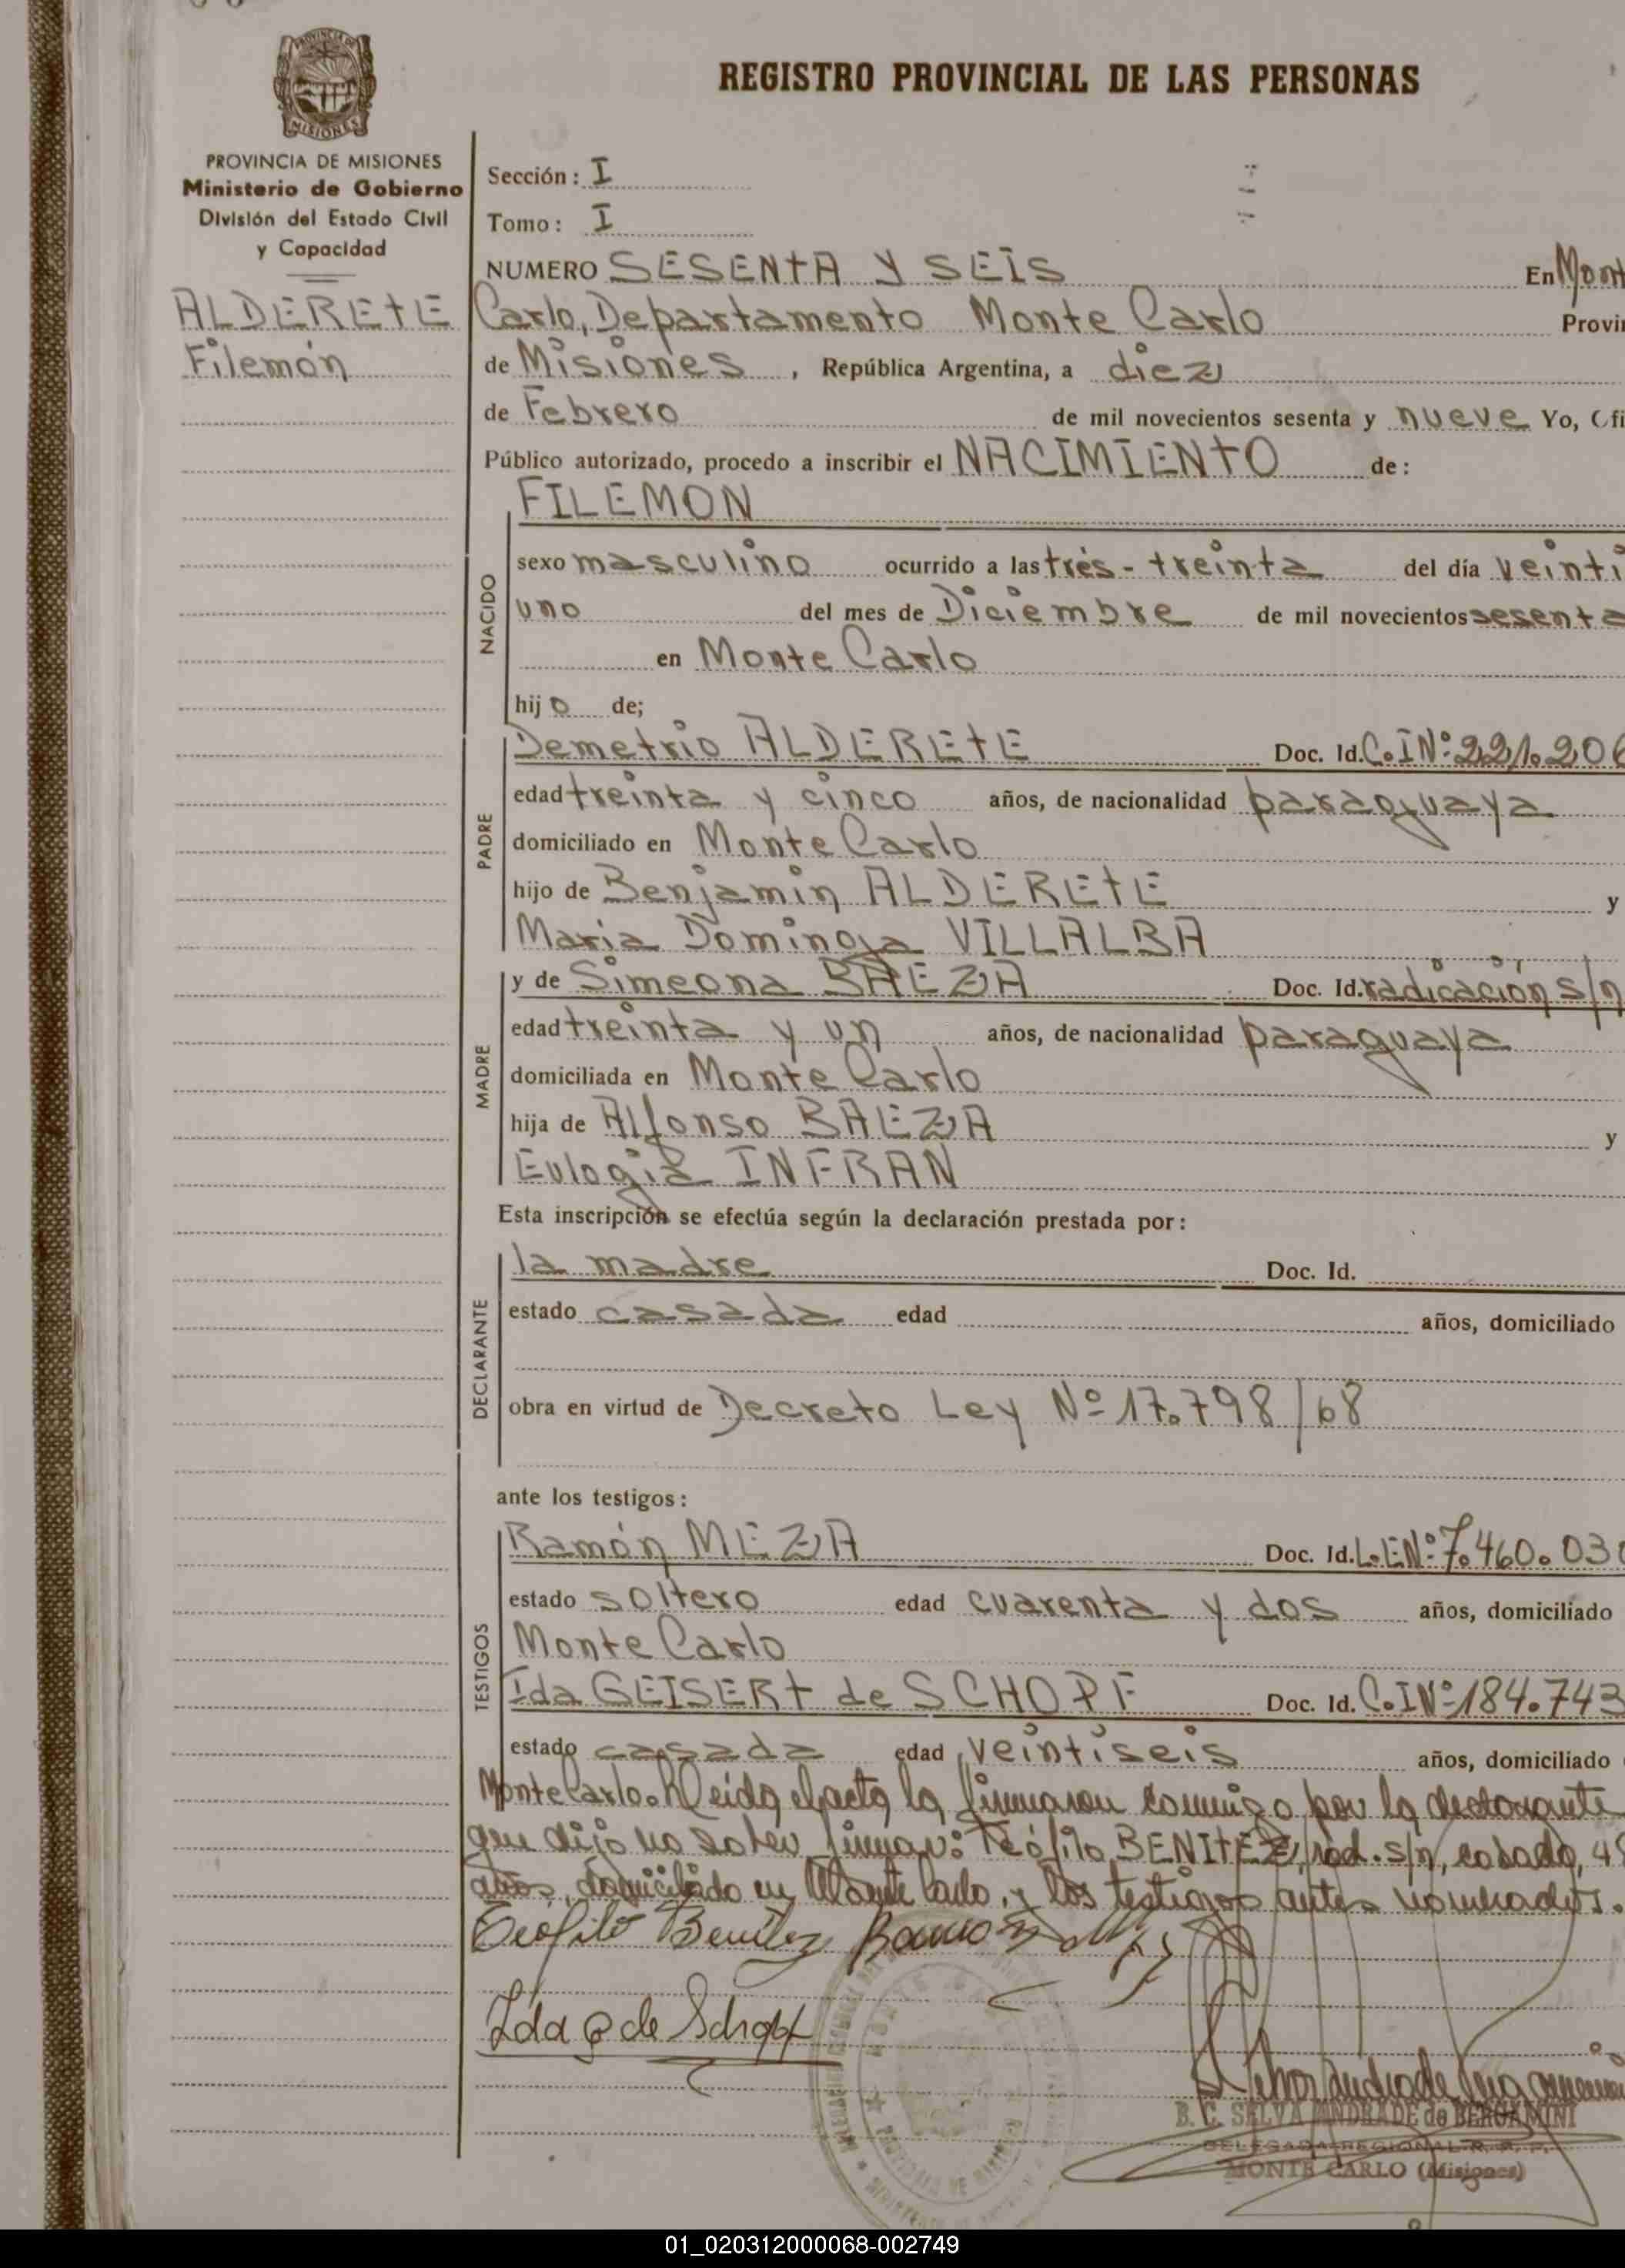 REGISTRO PROVINCIAL DE LAS PERSONAS
PROVINCIA DE MISIONES
Ministerio de Gobierno
División del Estado Civil
y Capacidad
ALDERETE
Filemón
Sección: I
Tomo: I
NUMERO SESENTA Y SEIS En Mont
Carlo, Departamento Monte Carlo Provi
de Misiones, República Argentina, a diez
de Febrero de mil novecientos sesenta y nueve Yo, Ofi
Público autorizado, procedo a inscribir el NACIMIENTO de:
NACIDO
FILEMON
sexo masculino ocurrido a las tres-treinta del día veinti
uno del mes de Diciembre de mil novecientos sesenta
en Monte Carlo
hijo de;
PADRE
Demetrio ALDERETE Doc. Id. C.I Nº 221.206
edad treinta y cinco años, de nacionalidad paraguaya
domiciliado en Monte Carlo
hijo de Benjamin ALDERETE y
Maria Dominga VILLALBA
MADRE
y de Simeona BAEZA Doc. Id. radicación s/n
edad treinta y un años, de nacionalidad paraguaya
domiciliada en Monte Carlo
hija de Alfonso BAEZA y
Eulogia INFRAN
Esta inscripción se efectúa según la declaración prestada por:
DECLARANTE
la madre Doc. Id.
estado casada edad años, domiciliado
obra en virtud de Decreto Ley Nº 17.798/68
ante los testigos:
TESTIGOS
Ramón MEZA Doc. Id. L.E Nº 7.460.03
estado soltero edad cuarenta y dos años, domiciliado
Monte Carlo
Ida GEISERT de SCHOPF Doc. Id. C.I Nº 184.743
estado casada edad veintiseis años, domiciliado
Monte Carlo. Leida el acta la firmaron conmigo por la declarante
que dijo no saber firmar: Teófilo BENITEZ, rad. s/n, casado, 4
años, domiciliado en Monte Carlo, y los testigos antes nombrados.
Teófilo Benítez Ramon
Ida G de Schopf
B. C. SELVA ANDRADE de BERGAMINI
DELEGADA REGIONAL R. P. P.
MONTE CARLO (Misiones)
01_020312000068-002749